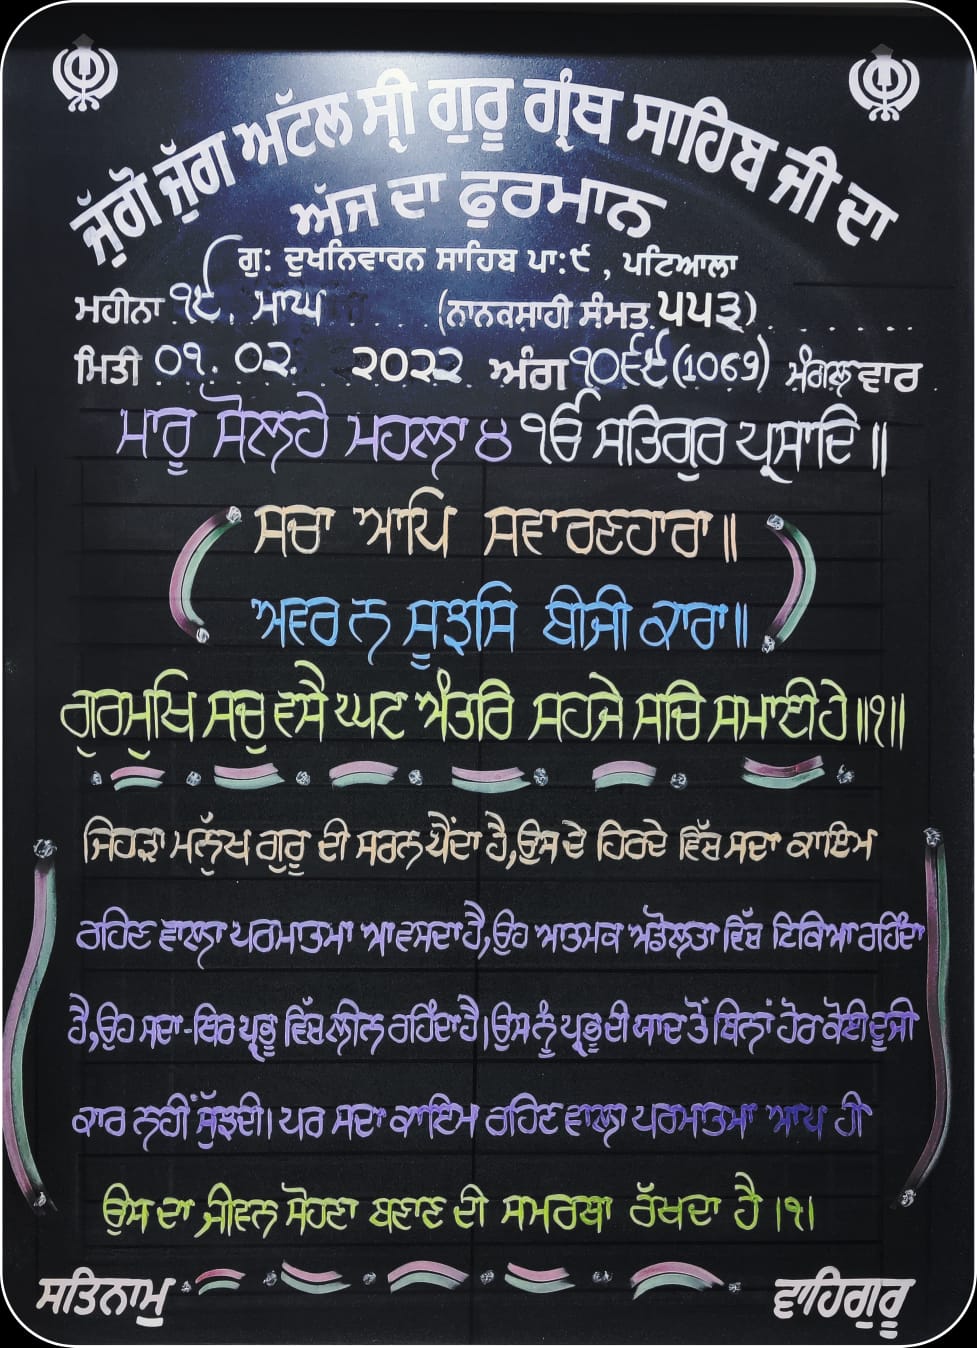 ਜੁੱਗੋ ਜੁੱਗ ਅੱਟਲ ਸ੍ਰੀ ਗੁਰੂ ਗ੍ਰੰਥ ਸਾਹਿਬ ਜੀ ਦਾ
ਅੱਜ ਦਾ ਫੁਰਮਾਨ
ਗੁ: ਦੁਖਨਿਵਾਰਨ ਸਾਹਿਬ ਪਾ:੯ , ਪਟਿਆਲਾ
ਮਹੀਨਾ ੧੯. ਮਾਘ (ਨਾਨਕਸਾਹੀ ਸੰਮਤ ੫੫੩)
ਮਿਤੀ ੦੧. ੦੨. ੨੦੨੨ ਅੰਗ ੧੦੬੯ (1069) ਮੰਗਲਵਾਰ
ਮਾਰੂ ਸੋਲਹੇ ਮਹਲਾ ੪ ੴ ਸਤਿਗੁਰ ਪ੍ਰਸਾਦਿ ॥
ਸਚਾ ਆਪਿ ਸਵਾਰਣਹਾਰਾ॥
ਅਵਰ ਨ ਸੂਝਸਿ ਬੀਜੀ ਕਾਰਾ॥
ਗੁਰਮੁਖਿ ਸਚੁ ਵਸੈ ਘਟ ਅੰਤਰਿ ਸਹਜੇ ਸਚਿ ਸਮਾਈ ਹੇ ॥੧॥
ਜਿਹੜਾ ਮਨੁੱਖ ਗੁਰੂ ਦੀ ਸਰਨ ਪੈਂਦਾ ਹੈ,ਉਸ ਦੇ ਹਿਰਦੇ ਵਿੱਚ ਸਦਾ ਕਾਇਮ
ਰਹਿਣ ਵਾਲਾ ਪਰਮਾਤਮਾ ਆ ਵਸਦਾ ਹੈ,ਉਹ ਆਤਮਕ ਅਡੋਲਤਾ ਵਿੱਚ ਟਿਕਿਆ ਰਹਿੰਦਾ
ਹੈ,ਉਹ ਸਦਾ-ਥਿਰ ਪ੍ਰਭੂ ਵਿੱਚ ਲੀਨ ਰਹਿੰਦਾ ਹੈ।ਉਸ ਨੂੰ ਪ੍ਰਭੂ ਦੀ ਯਾਦ ਤੋਂ ਬਿਨਾਂ ਹੋਰ ਕੋਈ ਦੂਜੀ
ਕਾਰ ਨਹੀਂ ਸੁੱਝਦੀ। ਪਰ ਸਦਾ ਕਾਇਮ ਰਹਿਣ ਵਾਲਾ ਪਰਮਾਤਮਾ ਆਪ ਹੀ
ਉਸ ਦਾ ਜੀਵਨ ਸੋਹਣਾ ਬਣਾਣ ਦੀ ਸਮਰਥਾ ਰੱਖਦਾ ਹੈ ।੧।
ਸਤਿਨਾਮੁ ਵਾਹਿਗੁਰੂ